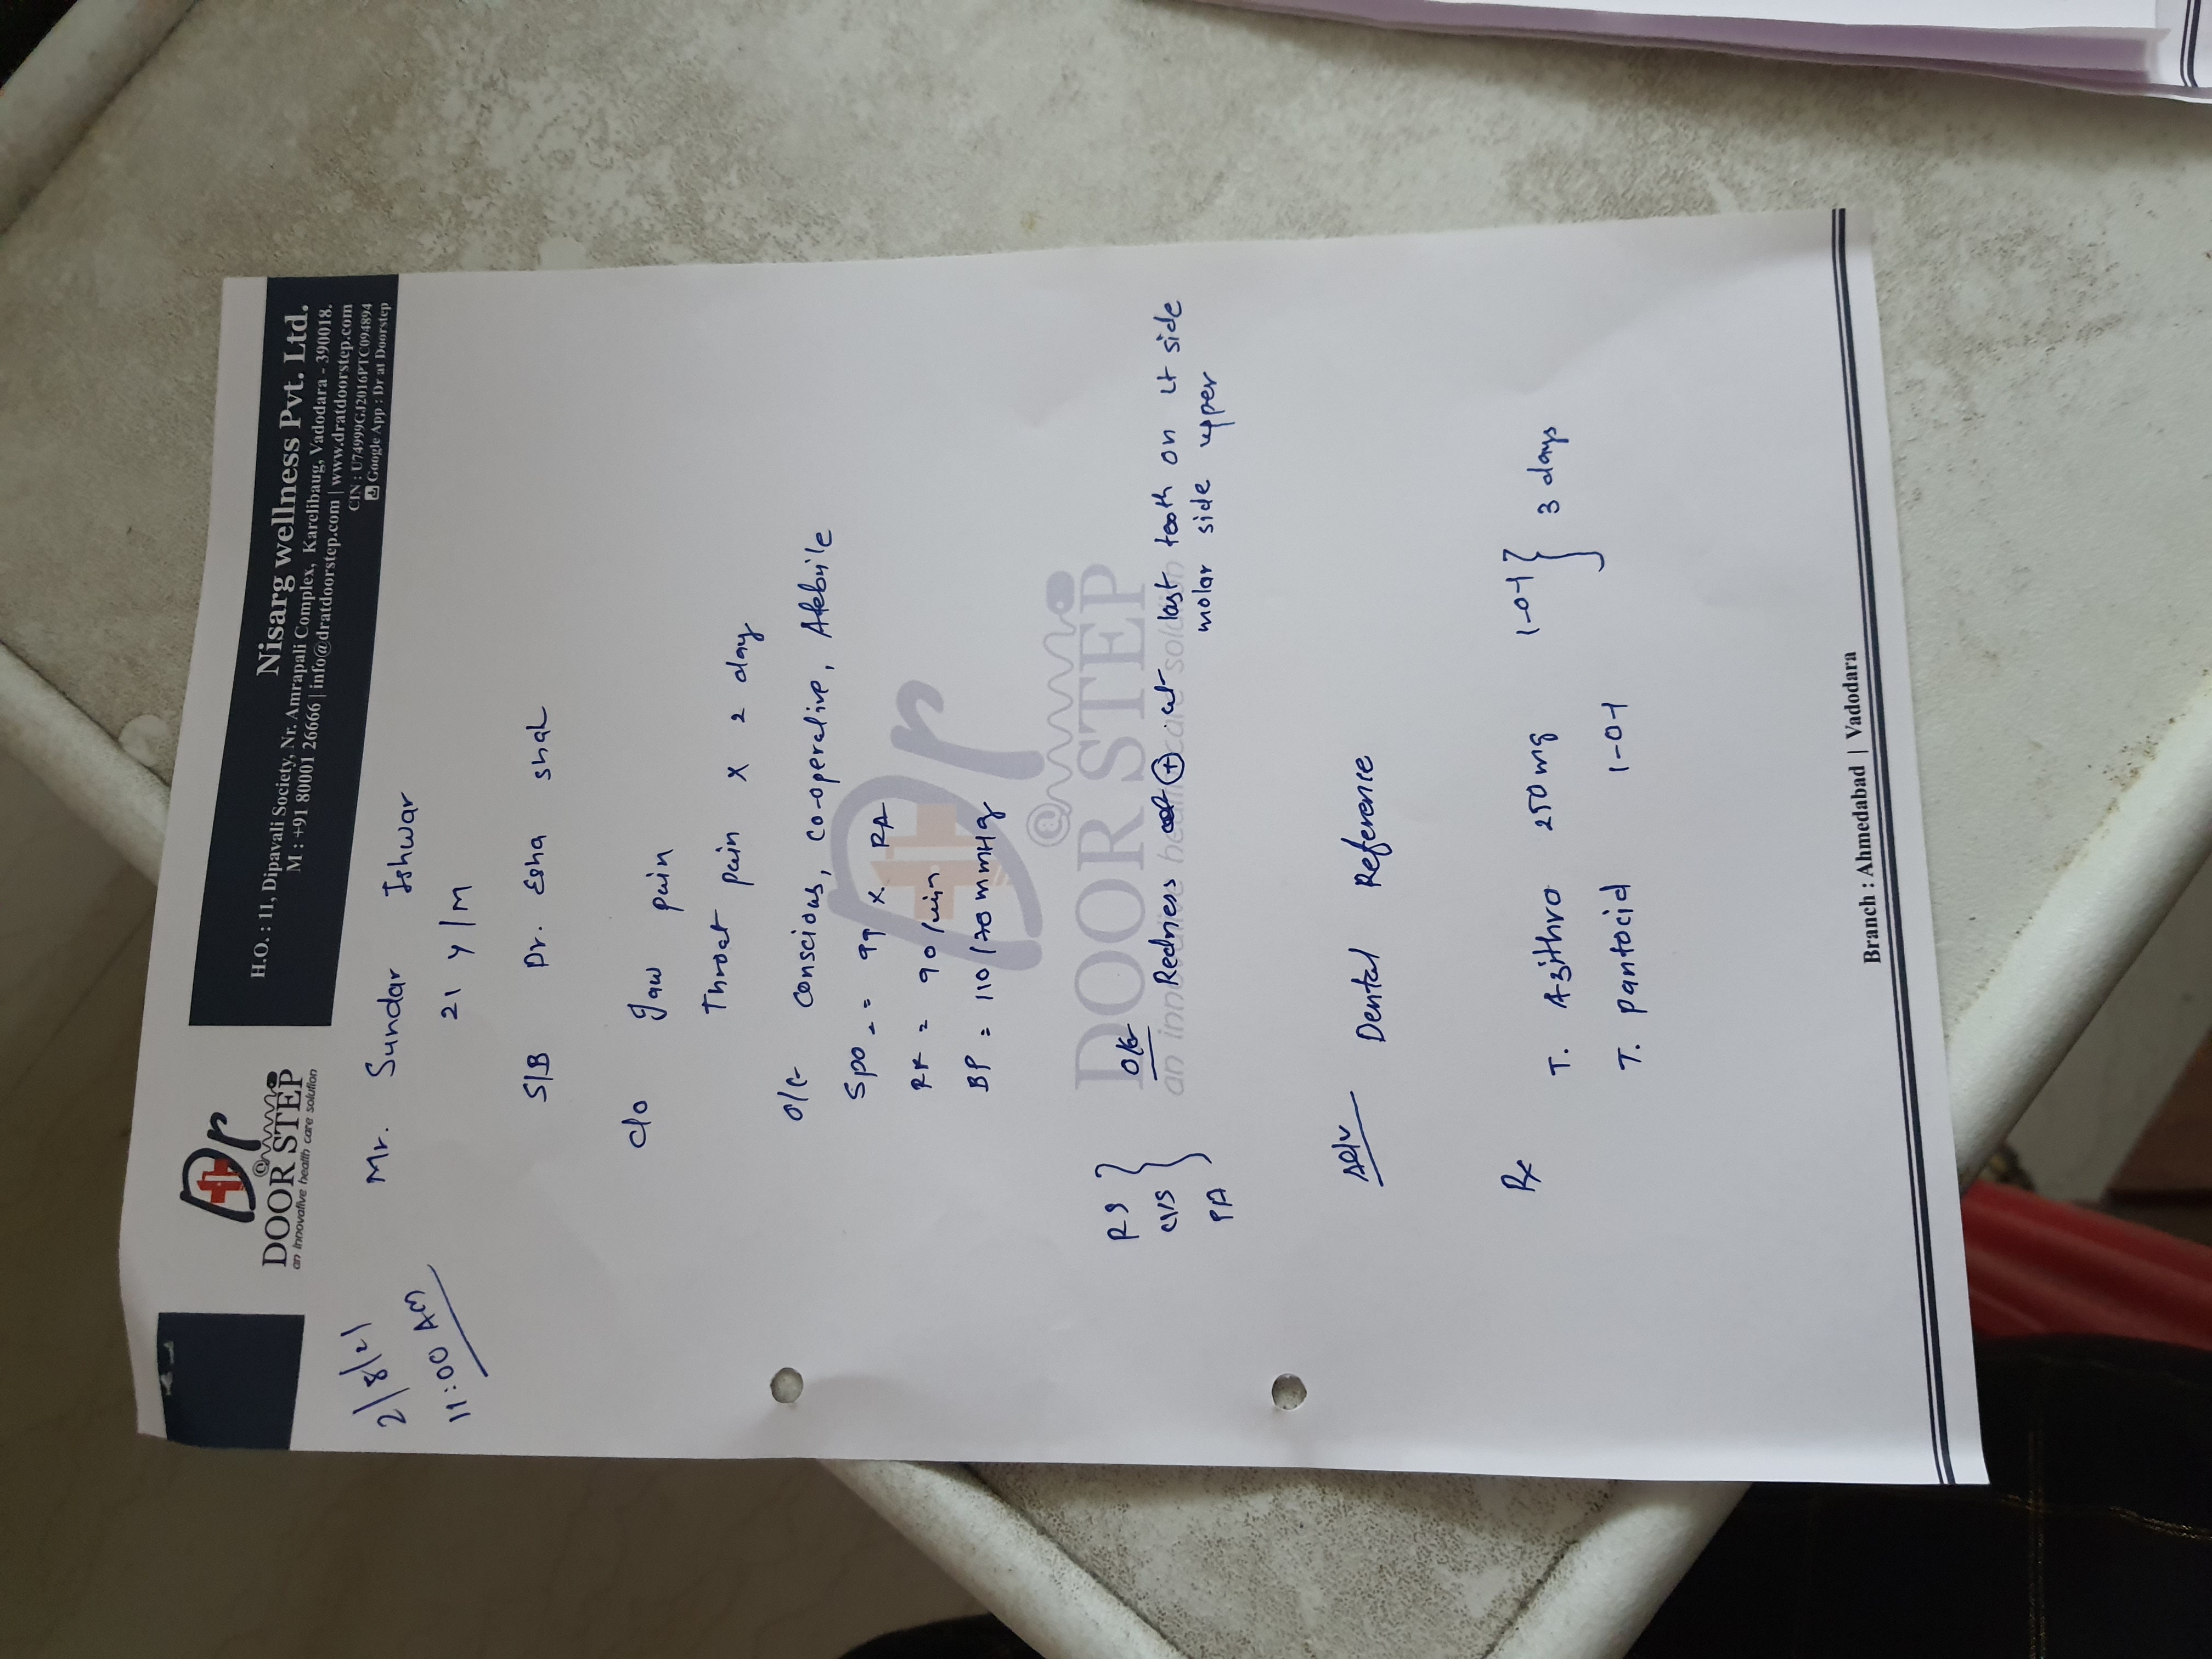 Dr
@
DOOR STEP
an innovative health care solution
Nisarg wellness Pvt. Ltd.
H.O. : 11, Dipavali Society, Nr. Amrapali Complex, Karelibaug, Vadodara - 390018.
M : +91 80001 26666 | info@dratdoorstep.com | www.dratdoorstep.com
CIN : U74999GJ2016PTC094894
Google App : Dr at Doorstep
2/8/21
11:00 AM
Mr. Sundar Ishwar
21 y/M
S/B Dr. Esha shah
c/o Jaw pain
Throat pain x 2 day
O/E conscious, co-operative, Afebrile
Spo2 = 99 % RA
= 90/min
BP = 110/70 mmHg
Dr
@
DOOR STEP
an innovative health care solution
RS
CVS
PA
O/E
Redness ⊕ at last tooth on Lt side
molar side upper
Adv Dental Reference
Rx
T. Azithro 250mg 1-0-1 } 3 days
T. Pantocid 1-0-1
Branch : Ahmedabad | Vadodara